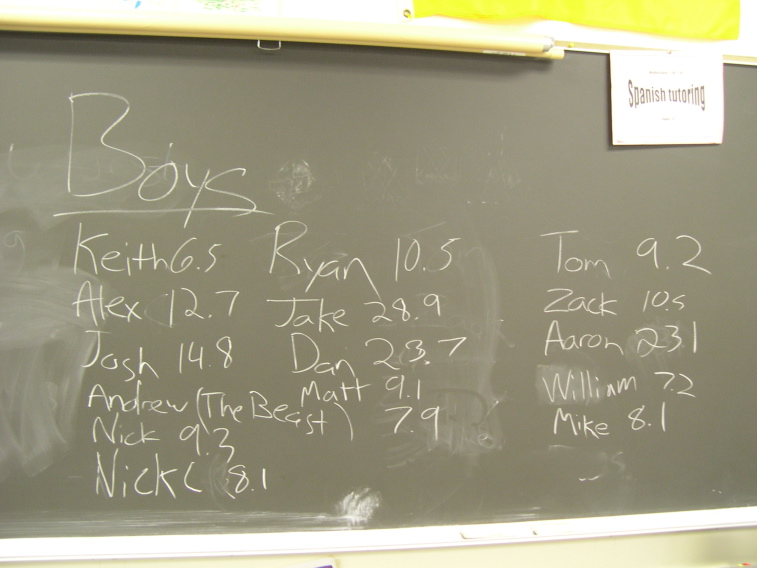 Spanish tutoring
Boys
Keith 6.5 Ryan 10.5 Tom 9.2
Alex 12.7 Jake 28.9 Zack 10.5
Josh 14.8 Dan 23.7 Aaron 23.1
Matt 9.1 William 72
Andrew (The Beast) 7.9 Mike 8.1
Nick 9.3
Nick C 8.1